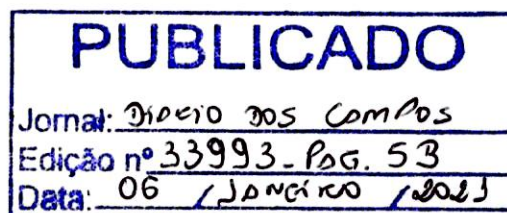 PUBLICADO
Jornal: DIÁRIO DOS CAMPOS
Edição nº 33993 - PAG. 5B
Data: 06 / JANEIRO / 2021